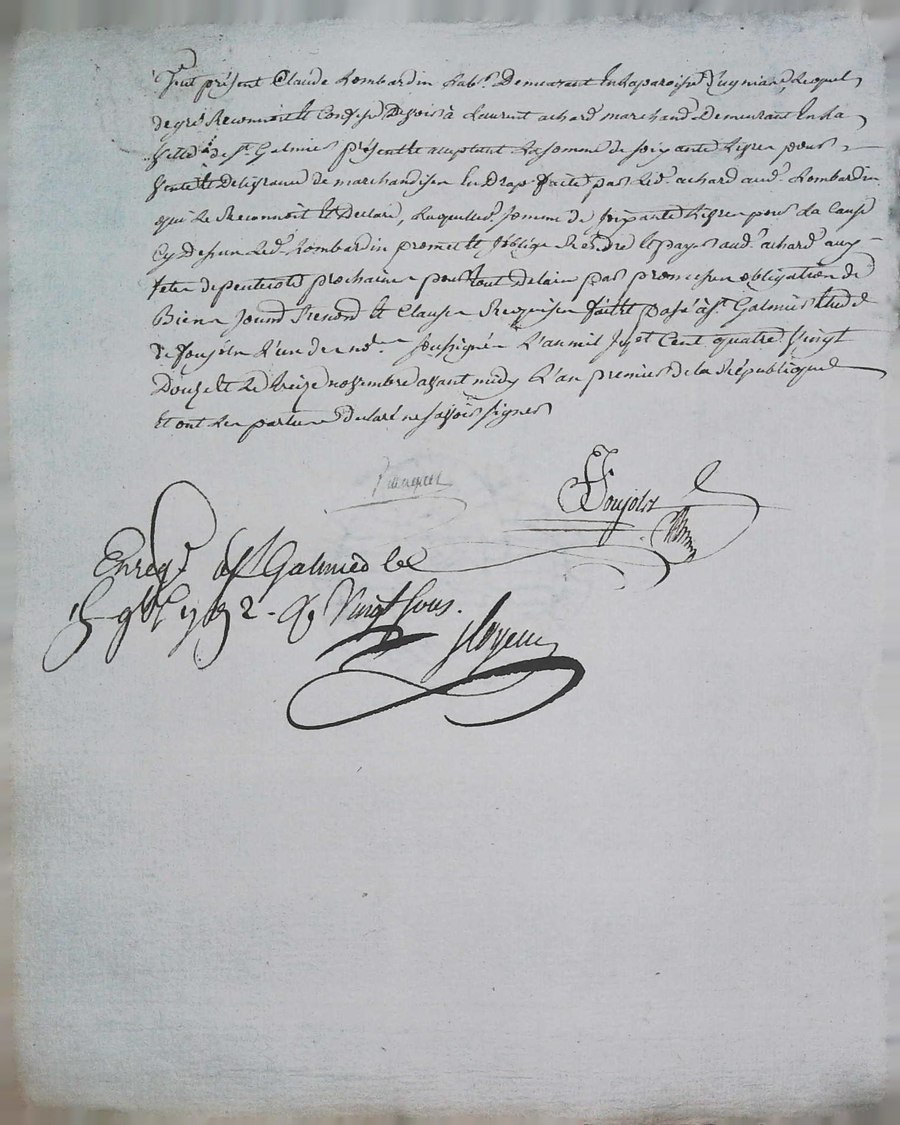 Fut présent Claude Lombardin Labr. Demeurant En La paroisse Lequel
de gré Reconnoit et Confesse Devoir à Laurent achard marchand Demeurant En La
Ville de St. Galmier présent et acceptant La somme de soixante Livres pour
Vente et Délivrance de marchandises En Drap faite par Led. achard aud. Lombardin
qui Le Reconnoit et Declare, Laquelle d. somme de soixante Livres pour La Cause
Cy Dessus Led. Lombardin promet et s'oblige Rendre et payer aud. achard aux
fetes de pentecote prochaines pour tout Delais par promesses obligation de
Biens Soumd. Renond. et Clauses Requises fait et passé à St. Galmier Etude
de Soujolx L'un des no.res soussignés L'an mil sept Cent quatre Vingt
Douze et Le treize novembre avant midy L'an premier de la République
Et ont Les parties declaré ne savoir signer
Soujolx
Enregt. à St Galmier le
15 9bre 1792 - R. Vingt sous.